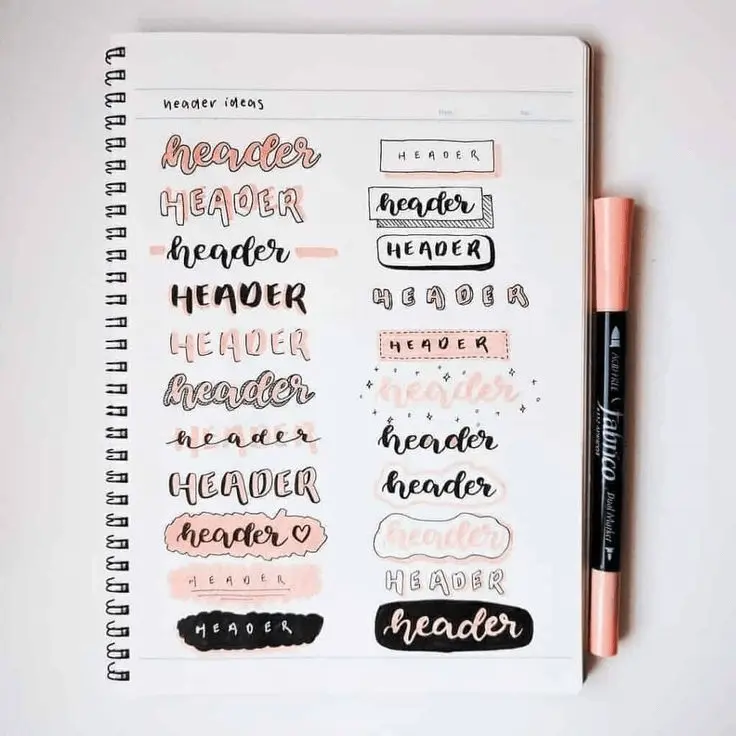 header ideas
header
HEADER
header
HEADER
HEADER
header
header
HEADER
header ♡
HEADER
HEADER
HEADER
header
HEADER
HEADER
HEADER
header
header
header
header
HEADER
header
ACID FREE
fabrico
Dual Marker